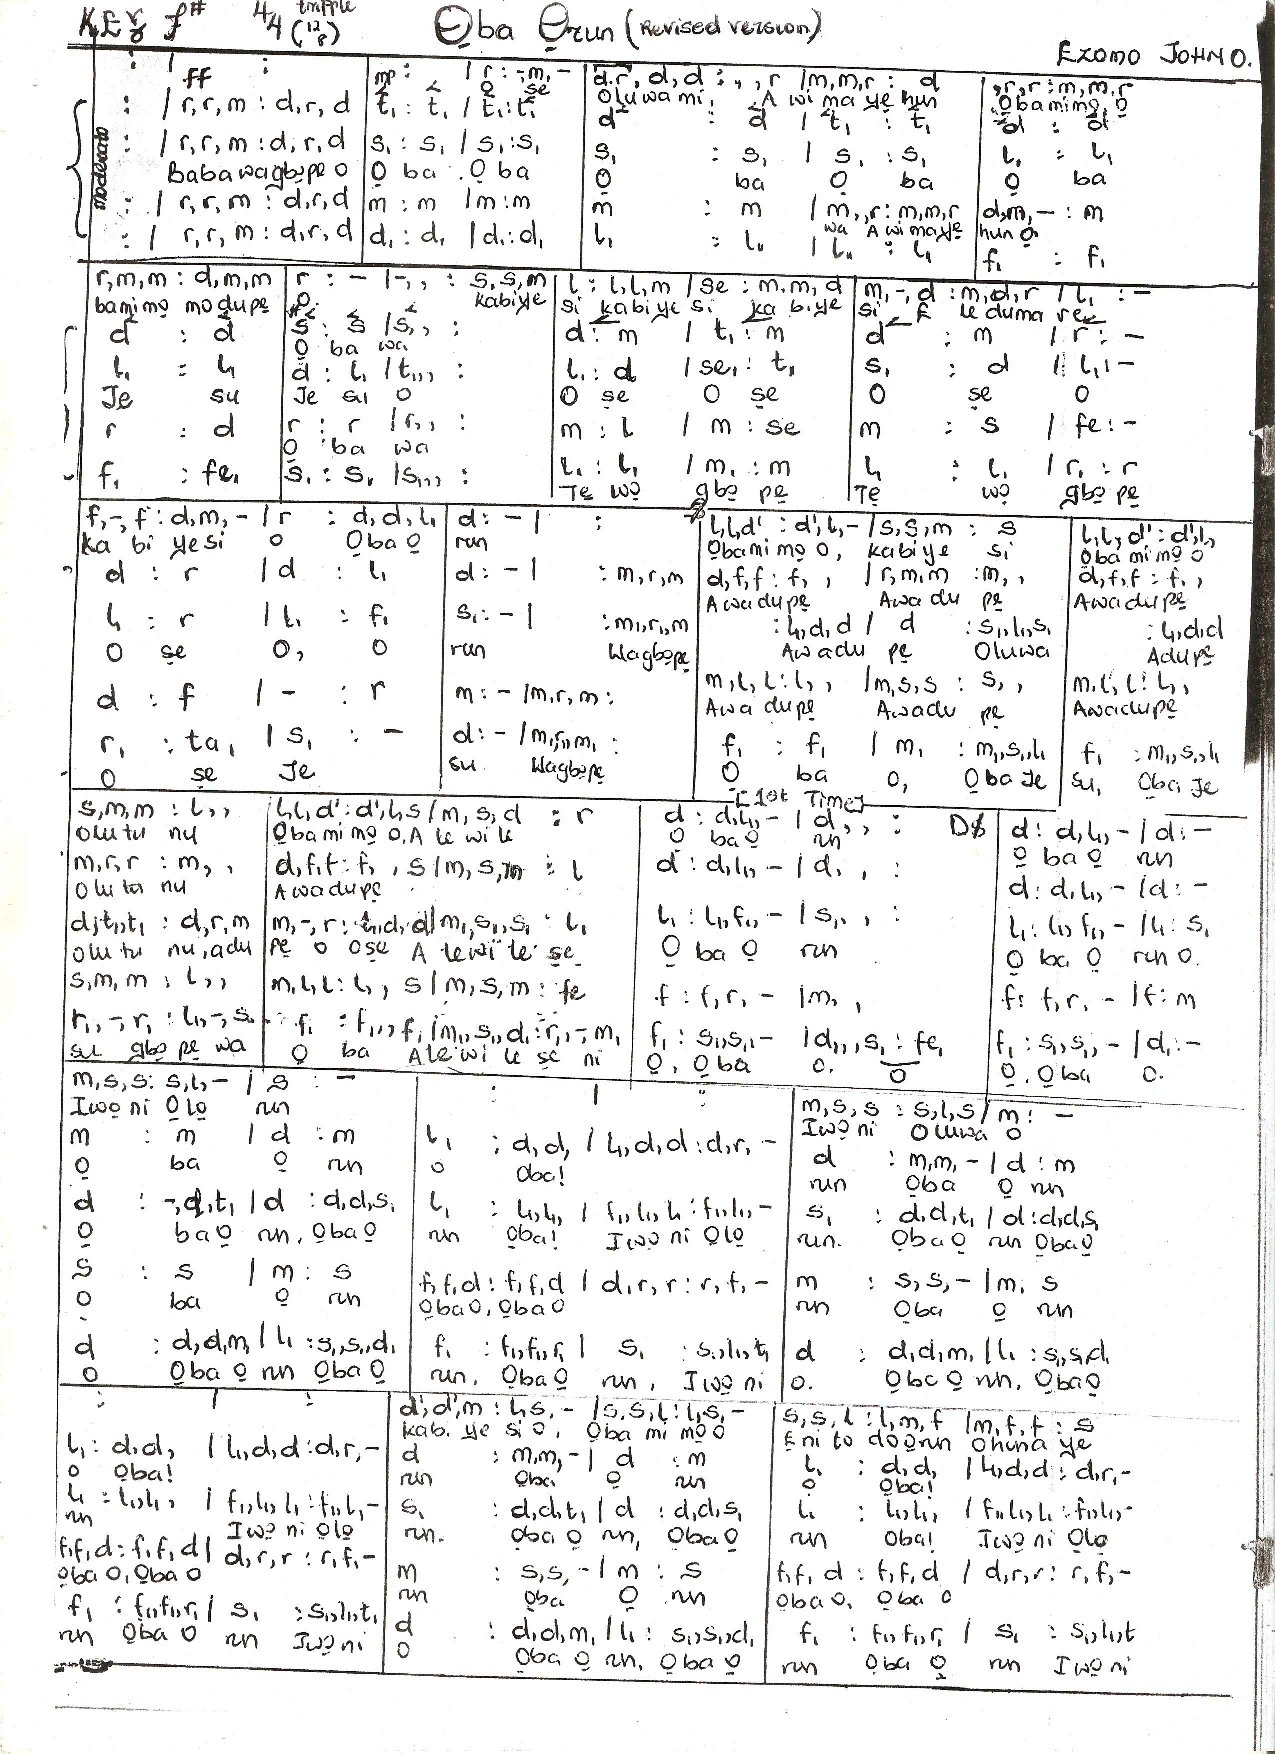 KEY f# 4/4 tripple (12/8) Ọba Ọrun (Revised version)
EZOMO JOHN O.
moderato
: | ff :
: | r,r,m : d,r,d
: | r,r,m : d,r,d
Baba wagbọpẹ o
: | r,r,m : d,r,d
: | r,r,m : d,r,d
mp : | r : -,m,-
Ọ sẹ
t₁ : t₁ | t₁ : t₁
s₁ : s₁ | s₁ : s₁
Ọ ba . Ọ ba
m : m | m : m
d₁ : d₁ | d₁ : d₁
d,r,d,d : , , r | m,m,r : d
Oluwa mi, A wi ma yẹ hun
d : d | t₁ : t₁
s₁ : s₁ | s₁ : s₁
Ọ ba Ọ ba
m : m | m,,r : m,m,r
wa A wi mayẹ
l₁ : l₁ | l₁ : l₁
,r,r : m,m,r
Ọbamimọ, Ọ
d : d
l₁ : l₁
Ọ ba
d,m,- : m
hun ọ
f₁ : f₁
r,m,m : d,m,m
bamimọ modupẹ
d : d
l₁ : l₁
Je su
r : d
f₁ : fe₁
r : - | -,, : s,s,m
o. kabiye
s : s | s,, :
Ọ ba wa
d : l₁ | t₁,, :
Je su o
r : r | r,, :
Ọ ba wa
s₁ : s₁ | s₁,, :
l : l,l,m | se : m,m,d
si kabiye si ka biye
d : m | t₁ : m
l₁ : d | se₁ : t₁
O sẹ O sẹ
m : l | m : se
l₁ : l₁ | m₁ : m
Tẹ wọ gbọ pẹ
m,-,d : m,d,r | l₁ : -
si Ẹ le duma re
d : m | r : -
s₁ : d | l₁ : -
O sẹ O
m : s | fe : -
l₁ : l₁ | r₁ : r
Tẹ wọ gbọ pẹ
f,-,f : d,m,- | r : d,d,l₁
ka bi yesi o Ọba Ọ
d : r | d : l₁
l₁ : r | l₁ : f₁
O sẹ O, O
d : f | - : r
r₁ : ta₁ | s₁ : -
O sẹ Je
d : - | :
run
d : - | : m,r,m
s₁ : - | : m,r,m
run Wagbọpẹ
m : - | m,r,m :
d : - | m,r,m, :
su. Wagbọpẹ
l,l,d' : d',l,- | s,s,m : s
Ọbamimọ o, kabiye si
d,f,f : f,, | r,m,m : m,,
Awadupẹ Awadu pẹ
: l₁,d,d | d : s₁,l₁,s₁
Awadu pẹ Oluwa
m,l,l : l,, | m,s,s : s,,
Awa dupẹ Awadu pẹ
f₁ : f₁ | m₁ : m₁,s₁,l₁
O ba o, Ọba Je
l,l,d' : d',l,
Ọba mi mọ o
d,f,f : f,,
Awadupẹ
: l₁,d,d
Adupẹ
m,l,l : l,,
Awadupẹ
f₁ : m₁,s₁,l₁
su, Ọba Je
s,m,m : l,,
Olutu nu
m,r,r : m,,
Olutu nu
d,t₁,t₁ : d,r,m
olutu nu,adu
s,m,m : l,,
r₁,-,r₁ : l₁,-,s₁
su gbọ pẹ wa
l,l,d' : d',l,s | m,s,d : r
Ọbamimọ o,A le wi le
d,f,f : f,,s | m,s,m : l
Awadupẹ
m,-,r : l₁,d,d | m,s₁,s₁ : l₁
pẹ o osẹ A lewi le sẹ
m,l,l : l,,s | m,s,m : fe
f₁ : f₁,,f₁ | m₁,s₁,d₁ : r₁,-,m₁
Ọ ba Alewi le sẹ ni
[1st Time]
d : d,l₁,- | d,, : D$
Ọ ba Ọ run
d : d,l₁,- | d, , :
l₁ : l₁,f₁,- | s₁, , :
Ọ ba Ọ run
f : f,r,- | m, ,
f₁ : s₁,s₁,- | d₁,,s₁ : fe₁
Ọ. Ọba o. Ọ
d : d,l₁,- | d : -
Ọ ba Ọ run
d : d,l₁,- | d : -
l₁ : l₁,f₁,- | l₁ : s₁
Ọ ba Ọ run o.
f : f,r,- | f : m
f₁ : s₁,s₁,- | d₁ : -
Ọ. Ọba o.
m,s,s : s,l,- | s : -
Iwọ ni Ọlọ run
m : m | d : m
Ọ ba Ọ run
d : -,d,t₁ | d : d,d,s₁
Ọ ba Ọ run, Ọba Ọ
s : s | m : s
o ba Ọ run
d : d,d,m₁ | l₁ : s₁,s₁,d₁
o Ọba Ọ run Ọba Ọ
: | :
l₁ : d,d, | l₁,d,d : d,r,-
o Ọba!
l₁ : l₁,l₁, | f₁,l₁,l₁ : f₁,l₁,-
run Ọba! Iwọ ni Ọlọ
f,f,d : f,f,d | d,r,r : r,f,-
Ọba o, Ọba o
f₁ : f₁,f₁,r₁ | s₁ : s₁,l₁,t₁
run, Ọba Ọ run, Iwọ ni
m,s,s : s,l,s | m : -
Iwọ ni Oluwa o
d : m,m,- | d : m
run Ọba Ọ run
s₁ : d,d,t₁ | d : d,d,s₁
run. Ọba Ọ run Ọba Ọ
m : s,s,- | m, s
run Ọba Ọ run
d : d,d,m₁ | l₁ : s₁,s₁,d₁
o. Ọba Ọ run, Ọba Ọ
: | :
l₁ : d,d, | l₁,d,d : d,r,-
o Ọba!
l₁ : l₁,l₁, | f₁,l₁,l₁ : f₁,l₁,-
run Iwọ ni Ọlọ
f,f,d : f,f,d | d,r,r : r,f,-
Ọba o, Ọba o
f₁ : f₁,f₁,r₁ | s₁ : s₁,l₁,t₁
run Ọba Ọ run Iwọ ni
d',d',m : l,s,- | s,s,l : l,s,-
kabi ye si o, Ọba mi mọ o
d : m,m,- | d : m
run Ọba Ọ run
s₁ : d,d,t₁ | d : d,d,s₁
run. Ọba Ọ run, Ọba Ọ
m : s,s,- | m : s
run Ọba Ọ run
d : d,d,m₁ | l₁ : s₁,s₁,d₁
o Ọba Ọ run, Ọba Ọ
s,s,l : l,m,f | m,f,f : s
Ẹni to dọọrun ohuna yẹ
l₁ : d,d, | l₁,d,d : d,r,-
o Ọba!
l₁ : l₁,l₁, | f₁,l₁,l₁ : f₁,l₁,-
run Ọba! Iwọ ni Ọlọ
f,f,d : f,f,d | d,r,r : r,f,-
Ọba o, Ọba o
f₁ : f₁,f₁,r₁ | s₁ : s₁,l₁,t
run Ọba Ọ run Iwọ ni